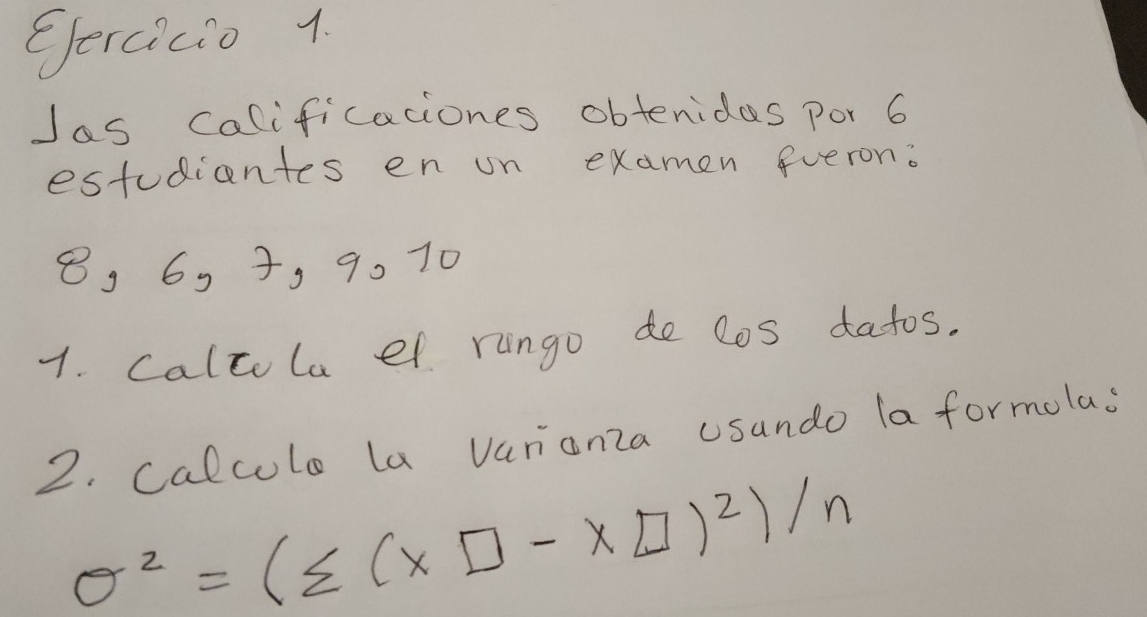 Ejercicio 1.
Las calificaciones obtenidas por 6
estudiantes en un examen fueron:
8, 6, 7, 9, 10
1. Calcula el rango de los datos.
2. Calcula la varianza usando la formula:
σ² = (Σ (x □ - x □)²)/n